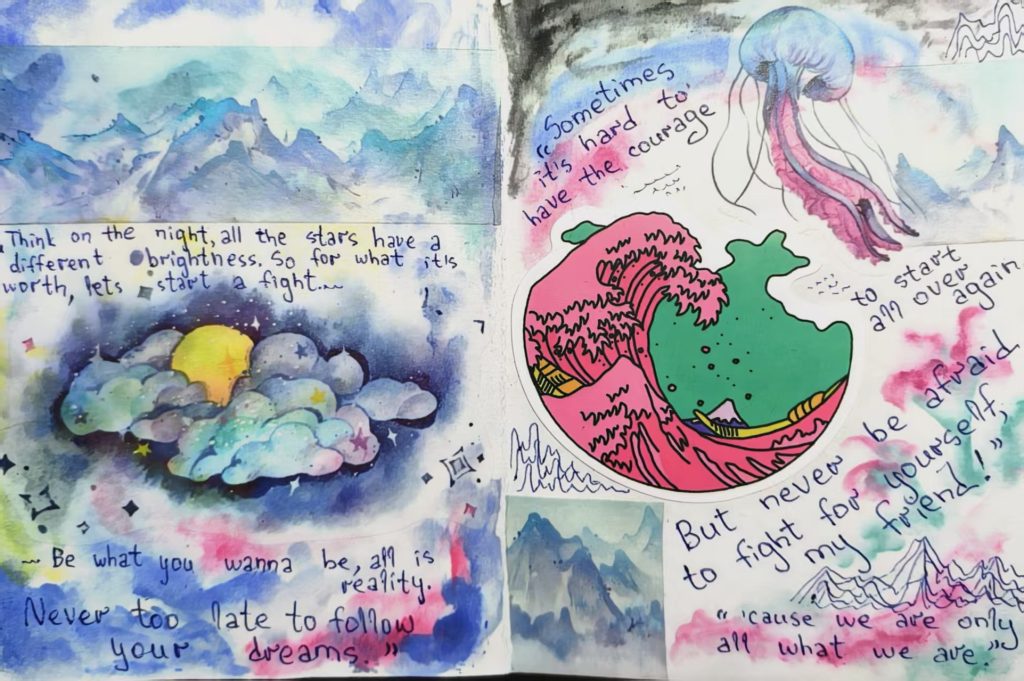 „Think on the night, all the stars have a
different brightness. So for what it's
worth, lets start a fight...~
~ Be what you wanna be, all is
reality.
Never too late to follow
your dreams."
„Sometimes
it's hard to
have the courage
to start
all over
again
But never be afraid
to fight for yourself,
my friend!"
"'cause we are only
all what we are."